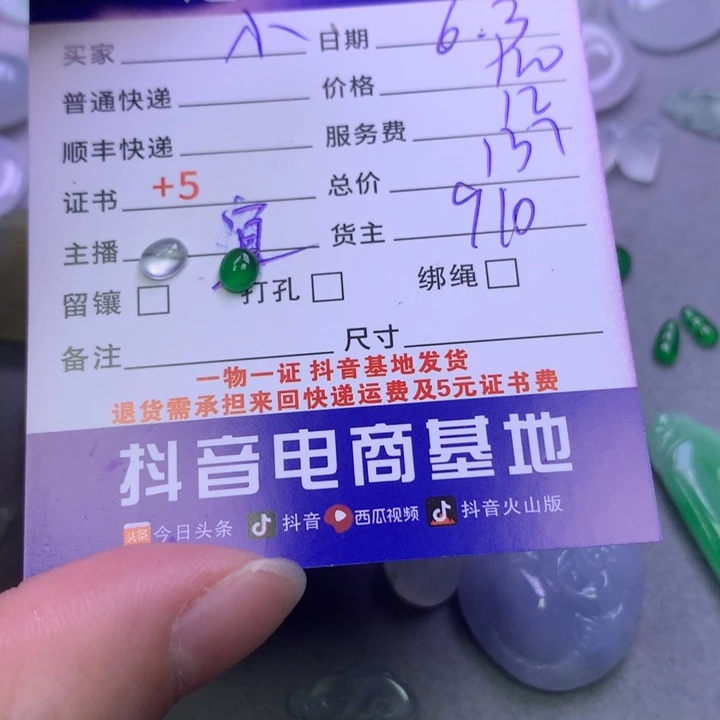 买家 小 日期 6.3
普通快递 价格 120
顺丰快递 服务费 12
证书 +5 总价 137
主播 宜 货主 910
留镶 打孔 绑绳
备注 尺寸
一物一证 抖音基地发货
退货需承担来回快递运费及5元证书费
抖音电商基地
头条 今日头条 抖音 西瓜视频 抖音火山版